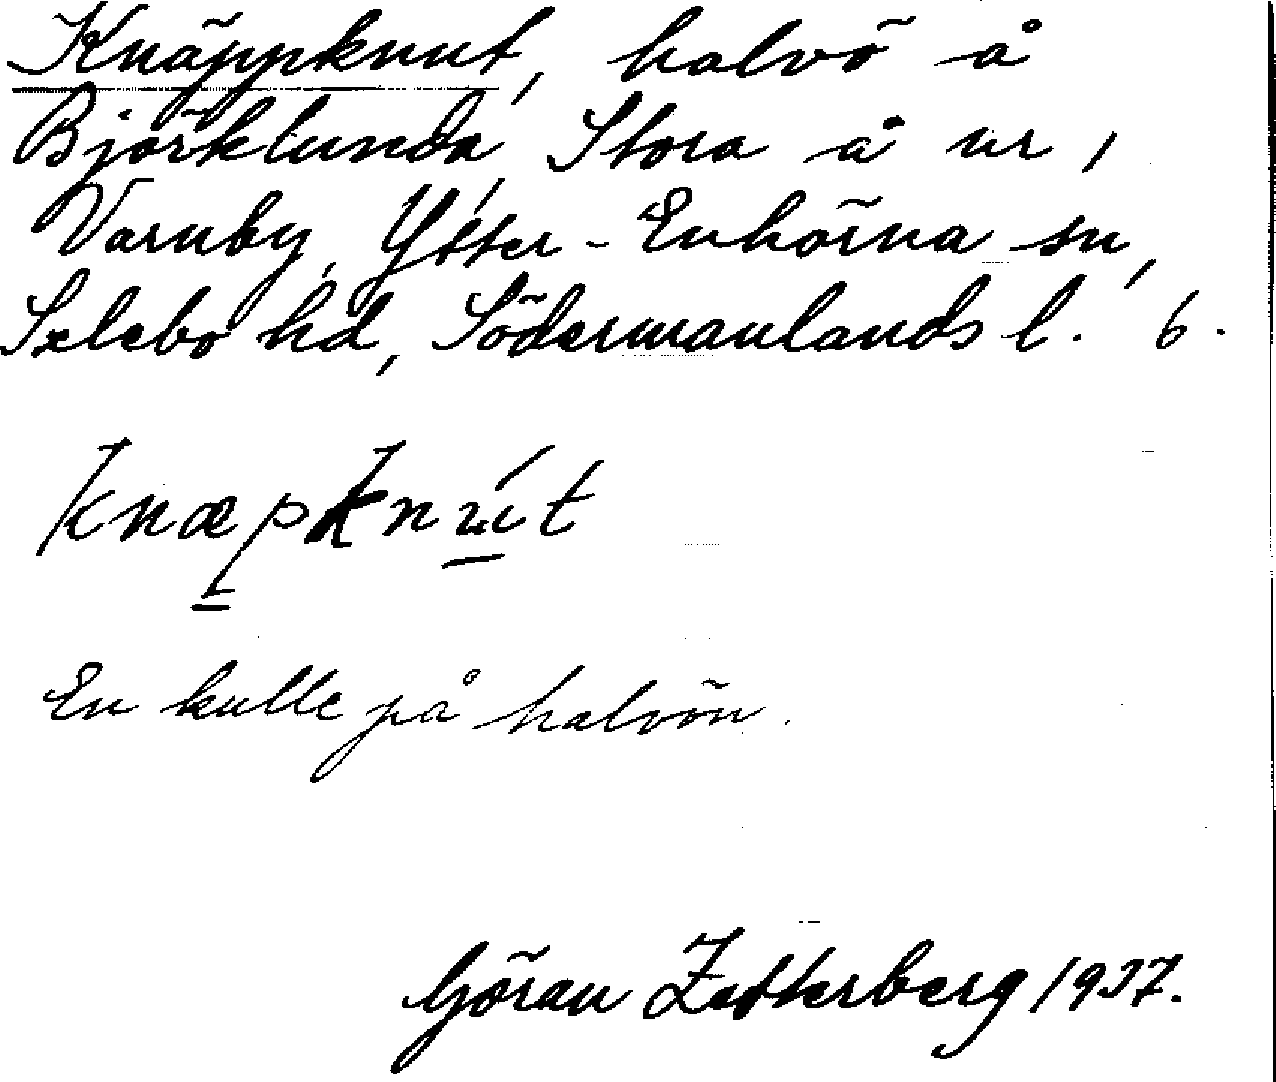 Knäppknut, halvö å
Björklunda, Stora å nr 1
Varnby, Ytter-Enhörna sn,
Selebo hd, Södermanlands l. 6.
knæpknút
En kulle på halvön.
Göran Zetterberg 1937.